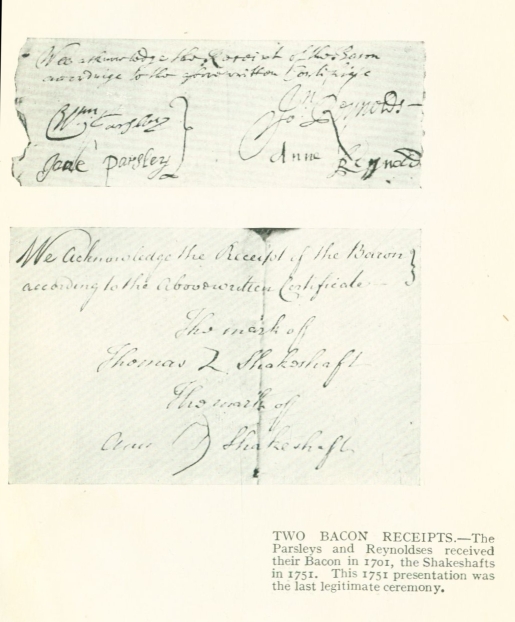 Wee acknowledge the Receipt of the Bacon
according to the above written Certificate
Wm Parsley
Jane Parsley
Jn Reynolds
Anne Reynolds
We Acknowledge the Receipt of the Bacon
according to the Abovewritten Certificate
The mark of
Thomas Shakeshaft
The mark of
Ann Shakeshaft
TWO BACON RECEIPTS.—The
Parsleys and Reynoldses received
their Bacon in 1701, the Shakeshafts
in 1751. This 1751 presentation was
the last legitimate ceremony.